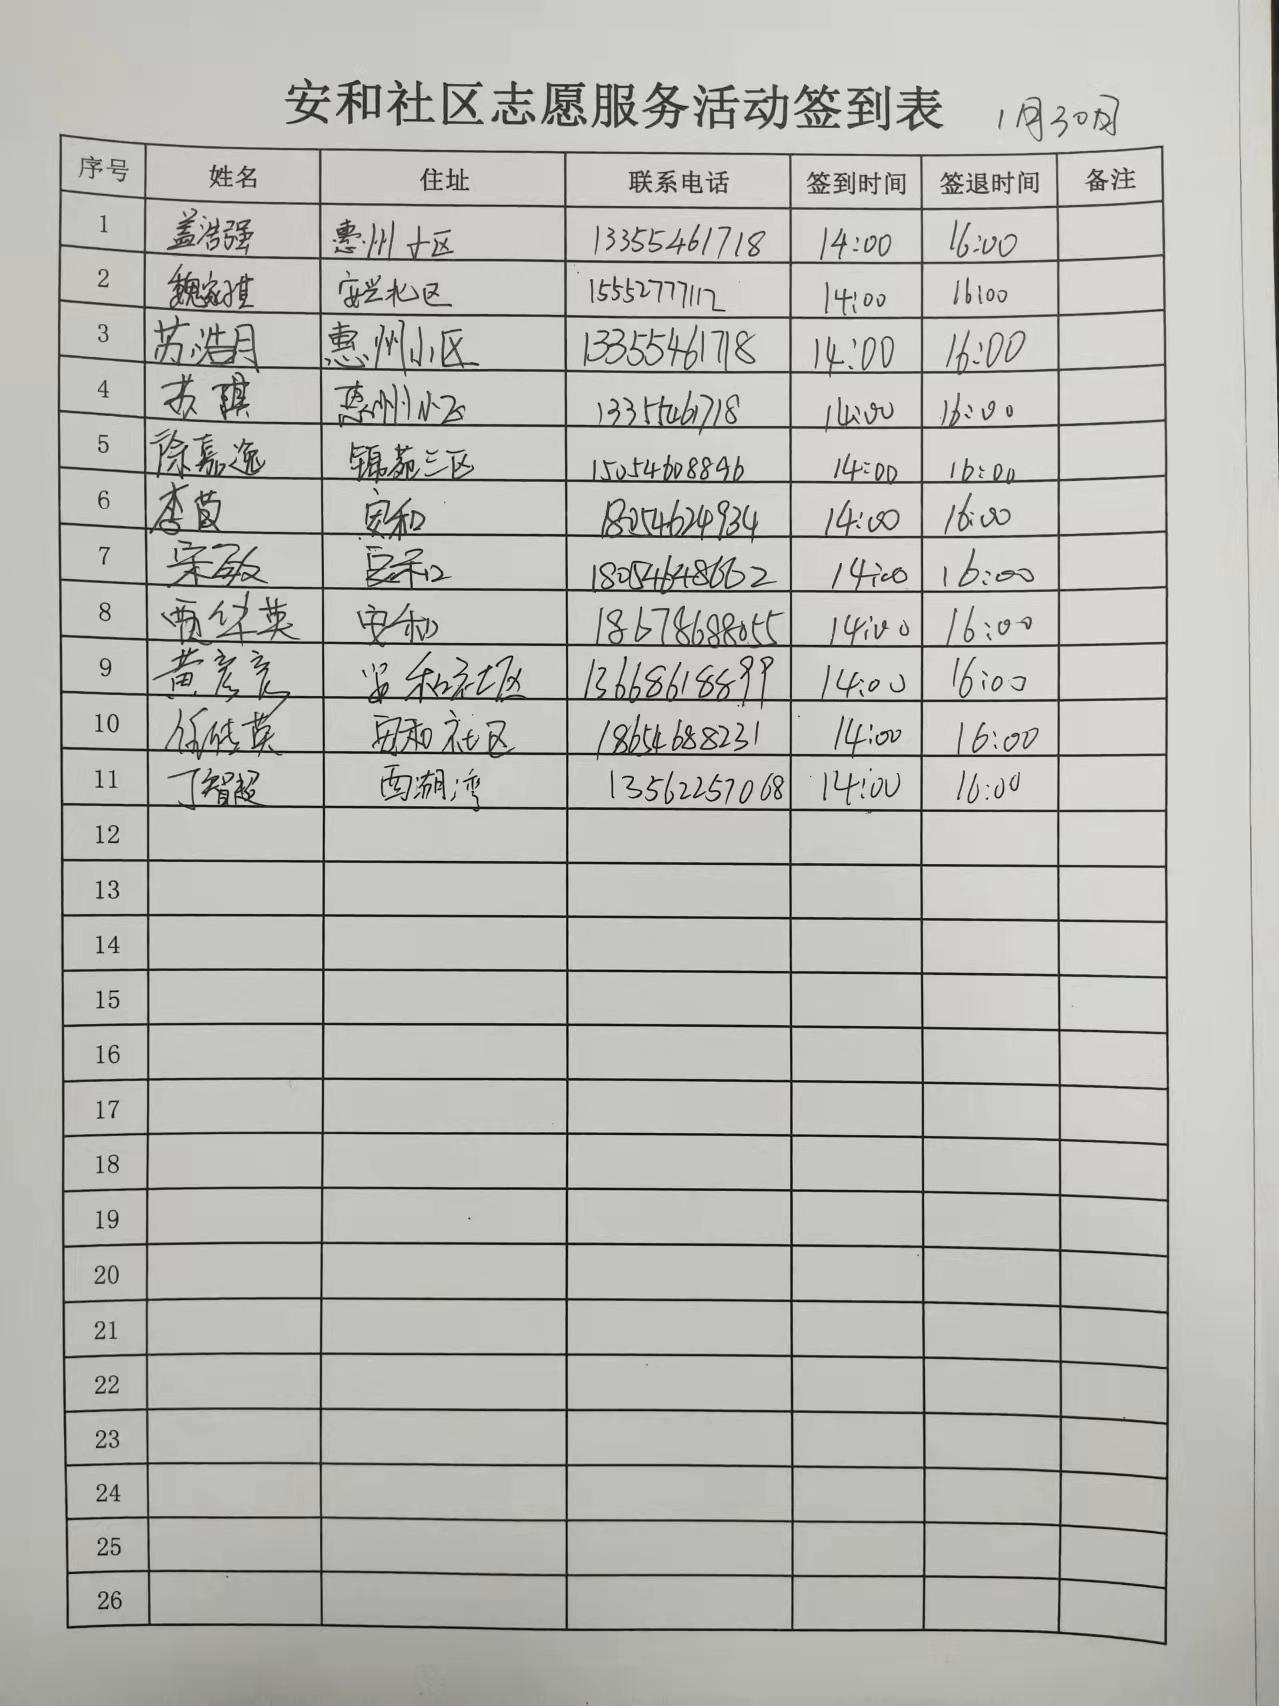 安和社区志愿服务活动签到表 1月30日
序号 姓名 住址 联系电话 签到时间 签退时间 备注
1 盖浩强 惠州小区 13355461718 14:00 16:00
2 魏家琪 安兴北区 15552777112 14:00 16:00
3 苏浩月 惠州小区 13355461718 14:00 16:00
4 苏琪 惠州小区 13355461718 14:00 16:00
5 徐嘉逸 锦苑三区 15054608896 14:00 16:00
6 李茵 安和 18054624934 14:00 16:00
7 宋敏 安和 14:00 16:00
8 贾华英 安和 18678688055 14:00 16:00
9 黄彦亮 安和社区 13668618899 14:00 16:00
10 任能英 安和社区 18654688231 14:00 16:00
11 丁智超 西湖湾 13562257068 14:00 16:00
12
13
14
15
16
17
18
19
20
21
22
23
24
25
26